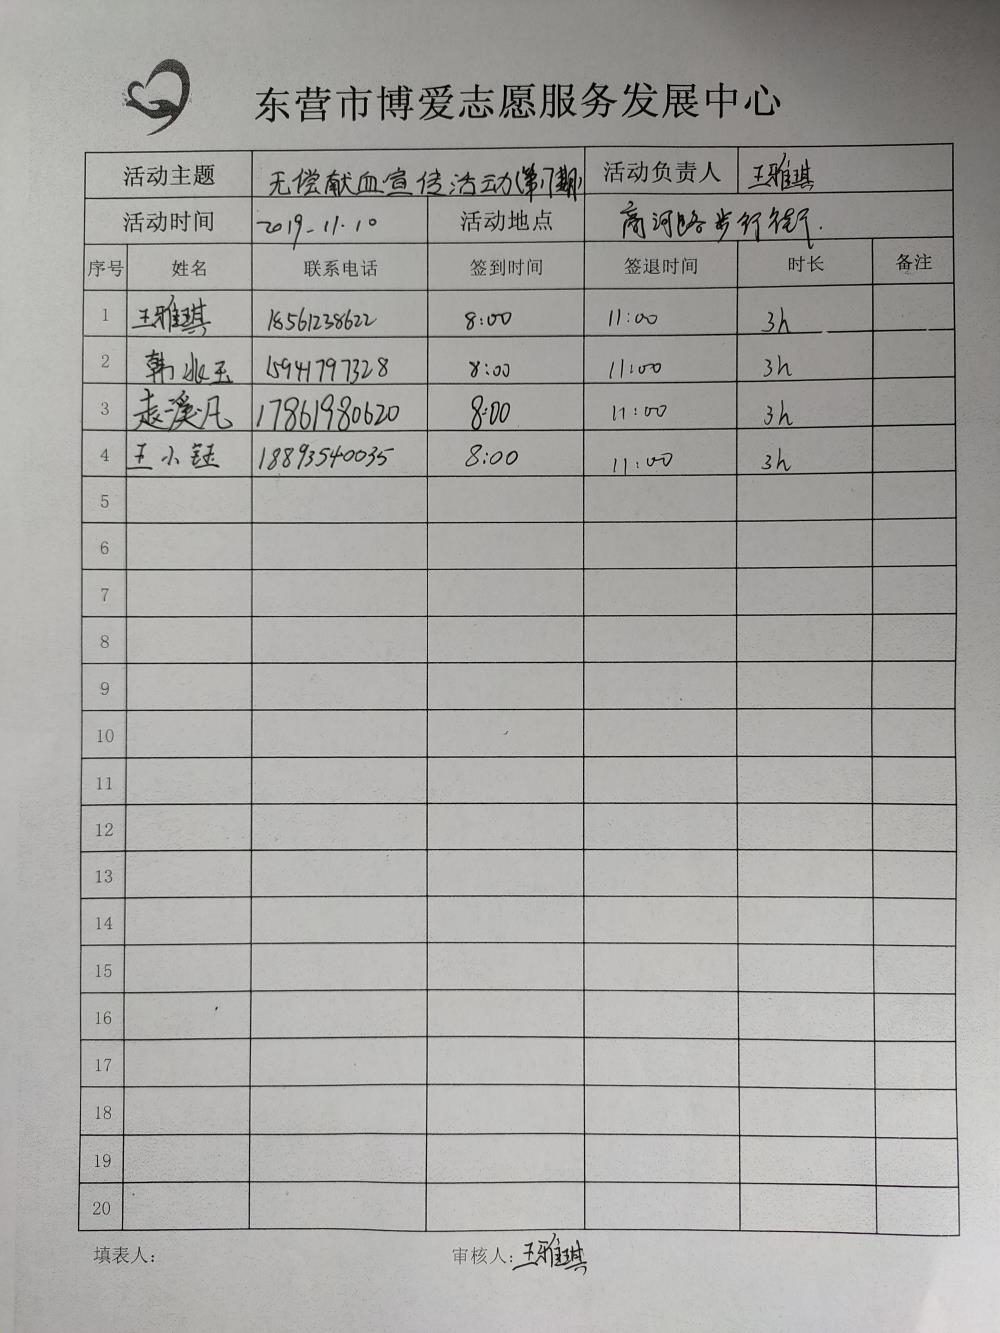 东营市博爱志愿服务发展中心
活动主题 无偿献血宣传活动(第17期) 活动负责人 王雅琪
活动时间 2019.11.10 活动地点 商河路步行街.
序号 姓名 联系电话 签到时间 签退时间 时长 备注
1 王雅琪 18561238622 8:00 11:00 3h
2 韩冰玉 15941797328 8:00 11:00 3h
3 袁溪凡 17861980620 8:00 11:00 3h
4 王小钰 18893540035 8:00 11:00 3h
5
6
7
8
9
10
11
12
13
14
15
16
17
18
19
20
填表人: 审核人:王雅琪